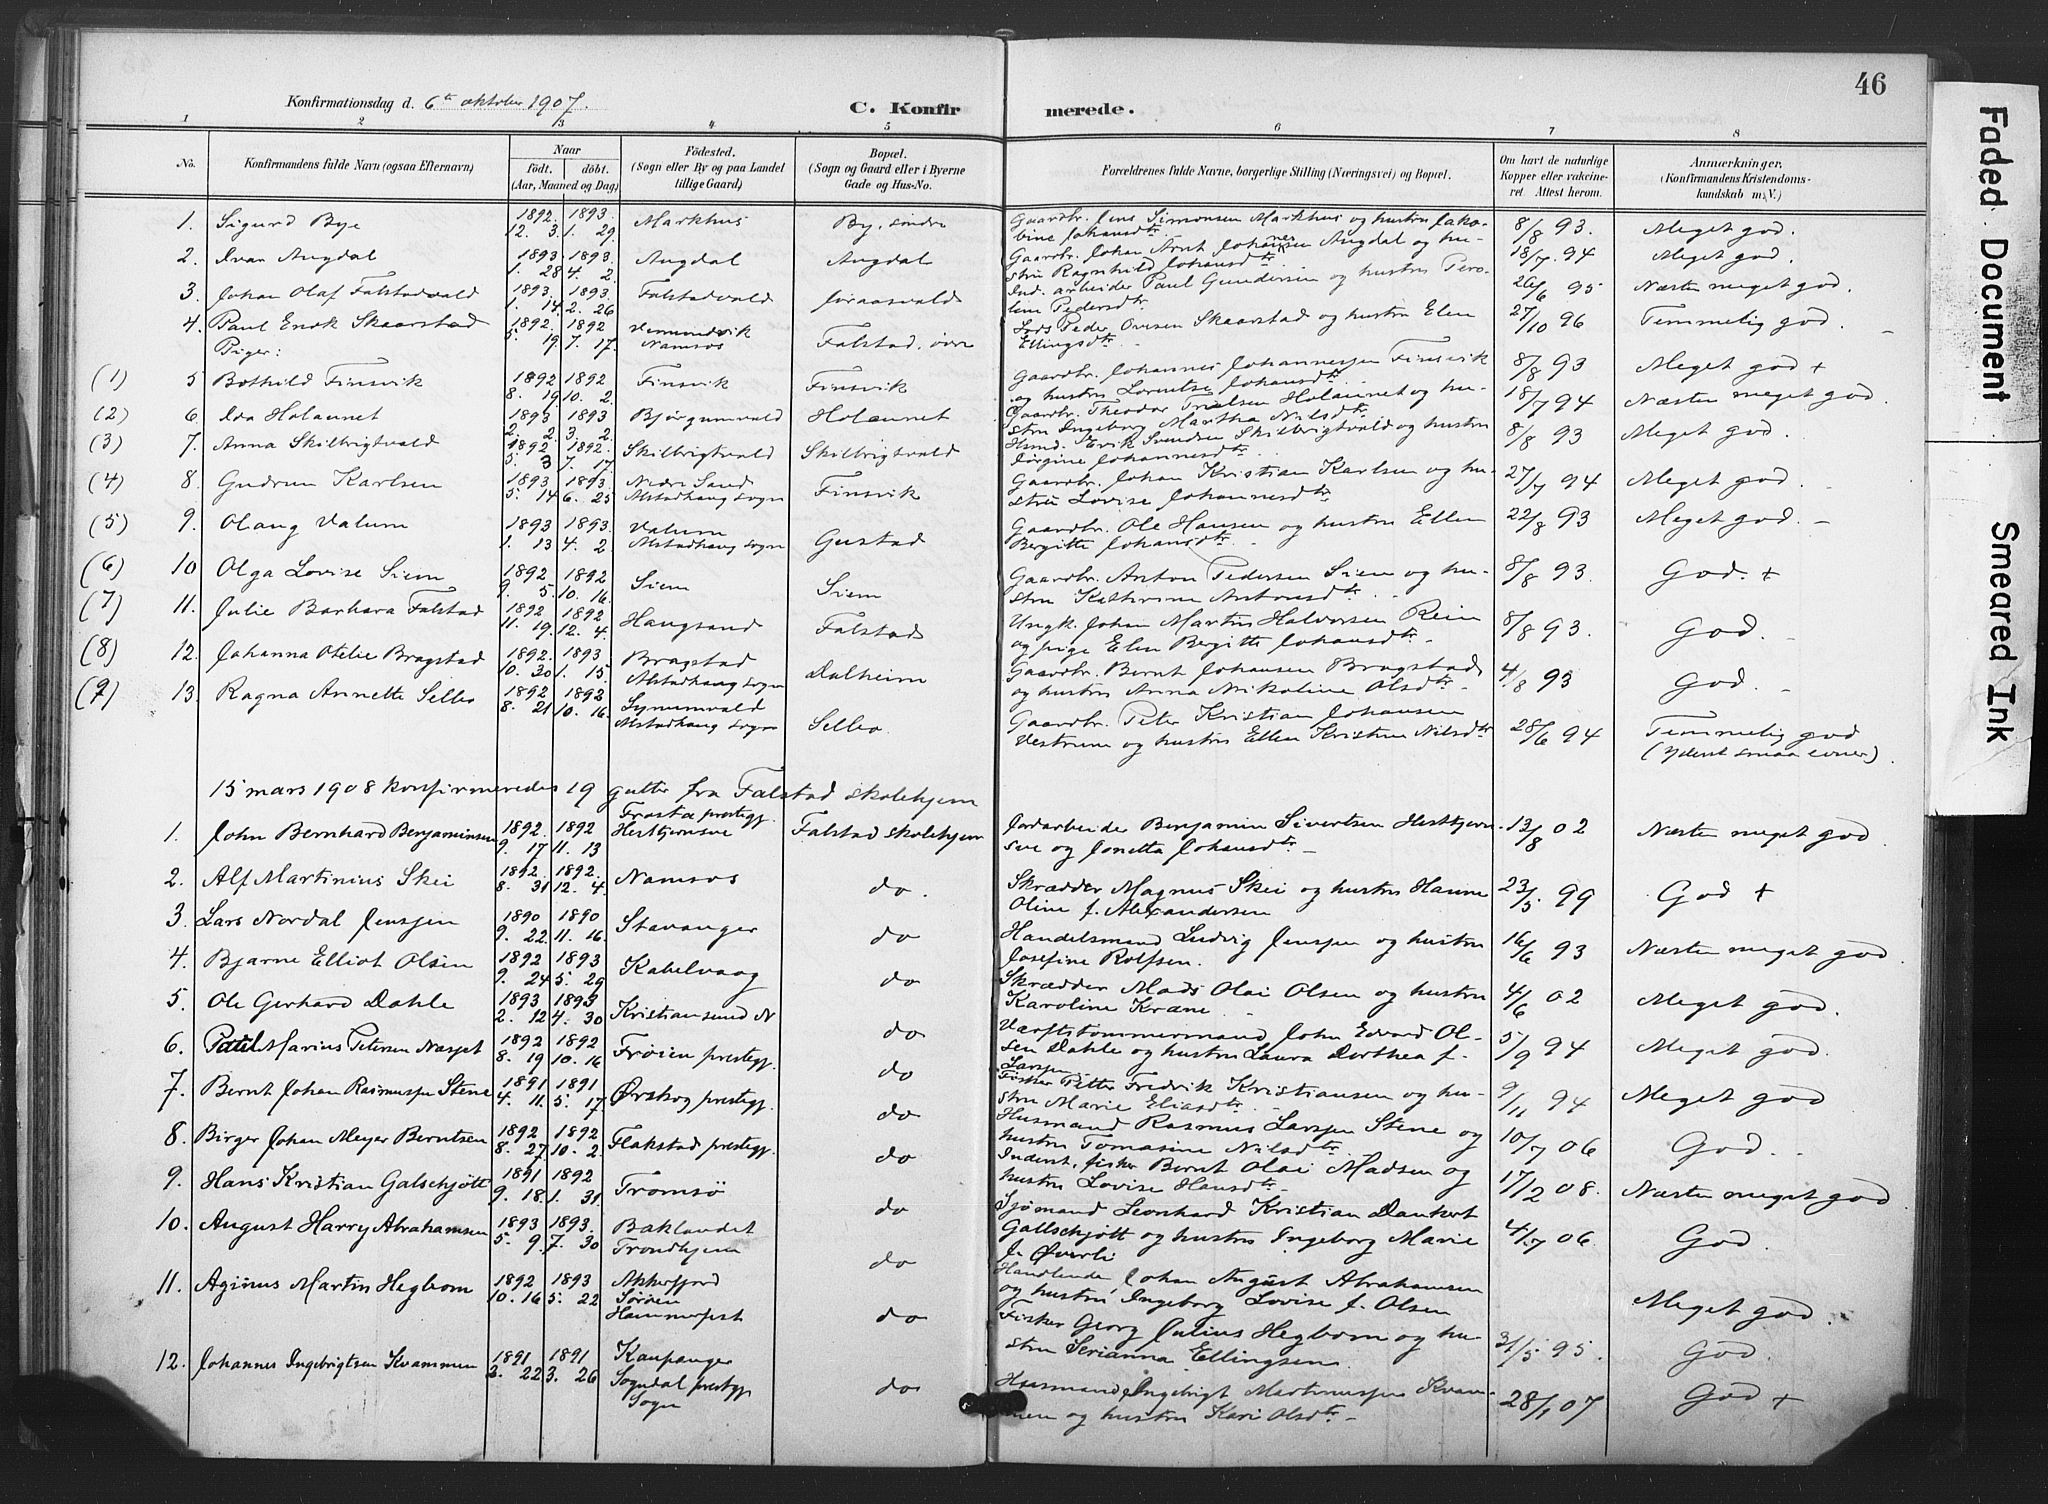 46
Konfirmationsdag d. 6te oktober 1907.
C. Konfirmerede.
1 2 3 4 5 6 7 8
No. Konfirmandens fulde Navn (ogsaa Efternavn) Naar født. døbt. (Aar, Maaned og Dag) Fødested. (Sogn eller By og paa Landet tillige Gaard) Bopæl. (Sogn og Gaard eller i Byerne Gade og Hus-No. Forældrenes fulde Navne, borgerlige Stilling (Næringsvei) og Bopæl. Om havt de naturlige Kopper eller vaccineret Attest herom. Anmærkninger. (Konfirmandens Kristendomskundskab m. V.)
1. Sigurd Bye 1892 12. 3 1893 1. 29. Markhus By, søndre Gaardbr. Jens Simonsen Markhus og hustru Jakobine Johansdtr. 8/8 93. Meget god.
2. Ivar Augdal 1893 1. 28 1893 4. 2. Augdal Augdal Gaardbr. Johan Arnt Johansen Augdal og hustru Ragnhild Johansdtr. 18/7. 94 Meget god.
3. Johan Olaf Falstadvald 1893. 1. 14 1893 2. 26 Falstadvald Ind. arbeider Paul Gundersen og hustru Peroline Pedersdtr. 26/6 95 Næsten meget god.
4. Paul Enok Skaarstad 1892. 5. 19 1892 7. 17. Vemundvik Namsos Falstad, øvre Lods Peder Ovesen Skaarstad og hustru Elen Ellingsdtr. 27/10 96 Temmelig god.
Piger:
(1) 5 Bothild Finsvik 1892 8. 19 1892 10. 2. Finsvik Finsvik Gaardbr. Johannes Johannessen Finsvik og hustru Lorentse Johansdtr. 8/8 93 Meget god +
(2) 6. Ida Holaunet 1893 2. 2. 1893 3. 2. Bjørgumvald Holaunet Gaardbr. Theodor Troelsen Holaunet og hustru Ingeborg Martha Nilsdtr. 18/7 94 Næsten meget god
(3) 7. Anna Skilbrigtvald 1892 5. 3 1892. 7. 17 Skilbrigtvald Skilbrigtvald Husmd. Erik Svendsen Skilbrigtvald og hustru Jørgine Johannesdtr. 8/8 93 Meget god.
(4) 8. Gudrun Karlsen 1893 5. 14 1893. 6. 25 Nedre Sand Alstadhaug sogn Finsvik Gaardbr. Johan Kristian Karlsen og hustru Lovise Johannesdtr. 27/7 94 Meget god.
(5) 9. Olaug Valum 1893 1. 13 1893 4. 2 Valum Alstadhaug sogn Gustad Gaardbr. Ole Hansen og hustru Ellen Bergitte Johansdtr. 22/8 93 Meget god.
(6) 10 Olga Lovise Siem 1892 9. 5 1892 10. 16. Siem Siem Gaardbr. Anton Pedersen Siem og hustru Kathrine Antonsdtr. 8/8 93. God. +
(7) 11. Julie Barbara Falstad 1892 11. 19. 1892 12. 4. Haugsand Falstad Ungk. Johan Martin Halvorsen Rein og pige Elen Bergitte Johansdtr. 8/8 93. God.
(8) 12. Johanna Otelie Bragstad 1892. 10. 30 1893 1. 15. Bragstad Alstadhaug sogn Dalheim Gaardbr. Bernt Johansen Bragstad og hustru Anna Nikoline Olsdtr. 4/8 93 God.
(9) 13. Ragna Annette Selbo 1892 8. 21 1892 10. 16. Lynumvald Alstadhaug sogn Selbo Gaardbr. Peter Kristian Johansen Vestrum og hustru Ellen Kristine Nilsdtr. 28/6 94 Temmelig god (Ydent smaa evner).
15 mars 1908 konfirmeredes 19 gutter fra Falstad skolehjem
1. John Bernhard Benjaminsen 1892. 9. 17 1892 11. 13 Frosta prestegj. Hestkjønsve Falstad skolehjem Jordarbeider Benjamin Sivertsen Hestkjønsve og Jonetta Johansdtr. 13/8 02 Næsten meget god
2. Alf Martinius Skei 1892. 8. 31 1892. 12. 4. Namsos do. Skrædder Magnus Skei og hustru Hanne Oline f. Alexandersen 23/5 99 God +
3. Lars Nordal Jenssen 1890 9. 22 1890 11. 16. Stavanger do Handelsmand Ludvig Jenssen og hustru Josefine Rolfsen. 16/6 93 Næsten meget god
4. Bjarne Elliot Olsen 1892 9. 24 1893 5. 29 Kabelvaag do Skrædder Mads Olai Olsen og hustru Karoline Krane 4/6 02 Meget god.
5. Ole Gerhard Dahle 1893 2. 12 1893 4. 30 Kristiansund N do Værftstømmermand John Edvard Olsen Dahle og hustru Laura Dorthea f. Larsen 5/9 94 Meget god.
6. Paul Marius Petersen Nesset 1892 8. 19 1892 10. 16 Frøien prestegj. do Fisker Petter Fredrik Kristiansen og hustru Marie Eliasdtr. 9/11 94 Meget god
7. Bernt Johan Rasmussen Stene 1891 4. 11. 1891 5. 17 Ørskog prestegj. do Husmand Rasmus Larssen Stene og hustru Tomasine Nilsdtr. 10/7 06 God.
8. Birger Johan Meyer Berntsen 1892 8. 27 1892 10. 2 Flakstad prestegj. do Indent. fisker Bernt Olai Madsen og hustru Lovise Hansdtr. 17/2 08. Næsten meget god
9. Hans Kristian Galschjøtt 1891 9. 18. 1892 1. 31 Tromsø do Sjømand Leonhard Kristian Dankert Gallschjøtt og hustru Ingeborg Marie f. Øverli 4/7 06. God.
10. August Harry Abrahamsen 1893 5. 9. 1893. 7. 30 Baklandet Trondhjem do Handlende Johan August Abrahamsen og hustru Ingeborg Lovise f. Olsen Meget god.
11. Aginus Martin Hegbom 1892 10. 16 1893 5. 22 Akkerfjord Sørøen Hammerfest do Fisker Georg Julius Hegbom og hustru Serianna Ellingsen. 31/5 95. God.
12. Johannes Ingebrigtsen Kvammen 1891 2. 22 1891 3. 26 Kaupanger Sogndal prestegj. Sogn do Husmand Ingebrigt Martinussen Kvammen og hustru Kari Olsdtr. 28/1 07 God +
Faded Document
Smeared Ink